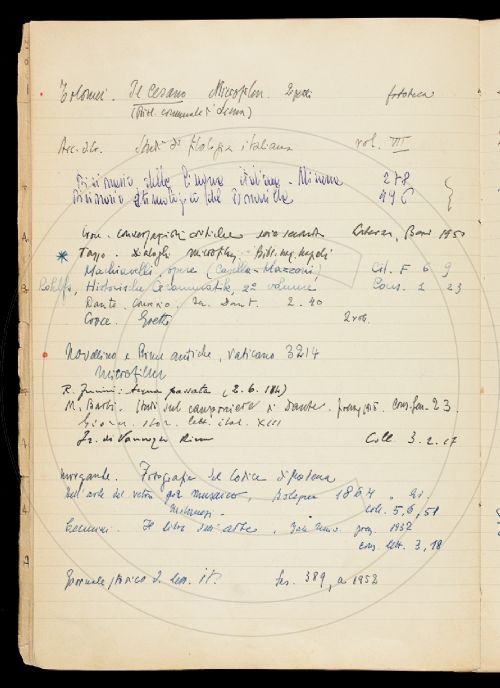 Tolomei. Il Cesano Microfilm. fototeca
(Bibl. comunale di Siena)
Acc. Studi di filologia italiana vol. VII
Dizionario della lingua italiana. 278
Dizionario etimologico 496
Croce. Conversazioni critiche serie seconda Laterza, Bari 1950
* Tasso. Dialoghi microfilm Bibl. Naz. Napoli
Machiavelli, opere (Casella-Mazzoni) Cit. F 6 9
Rohlfs, Historische Grammatik, 2º volume Cons. 1 23
Dante. Convivio. Dant. 2. 40
Croce. Goethe 2 vol.
Novellino e Rime antiche, Vaticano 3214
Microfilm
R. Acqua passata (2. 6.
M. Barbi. Studi sul canzoniere di Dante. 1915. 23
Giorn. stor. lett. ital. XIII
Fr. di Vannozzo Rime Coll. 3. 2. 17
Morgante. Fotografia del Codice di Modena
Dell'arte del vetro per musaico, Bologna 1864.
coll. 5, 6, 51
Cennini. Il libro dell'arte, 1932
cons. lett. 3, 18
Giornale storico d. lett. it. fas. 389, a. 1952